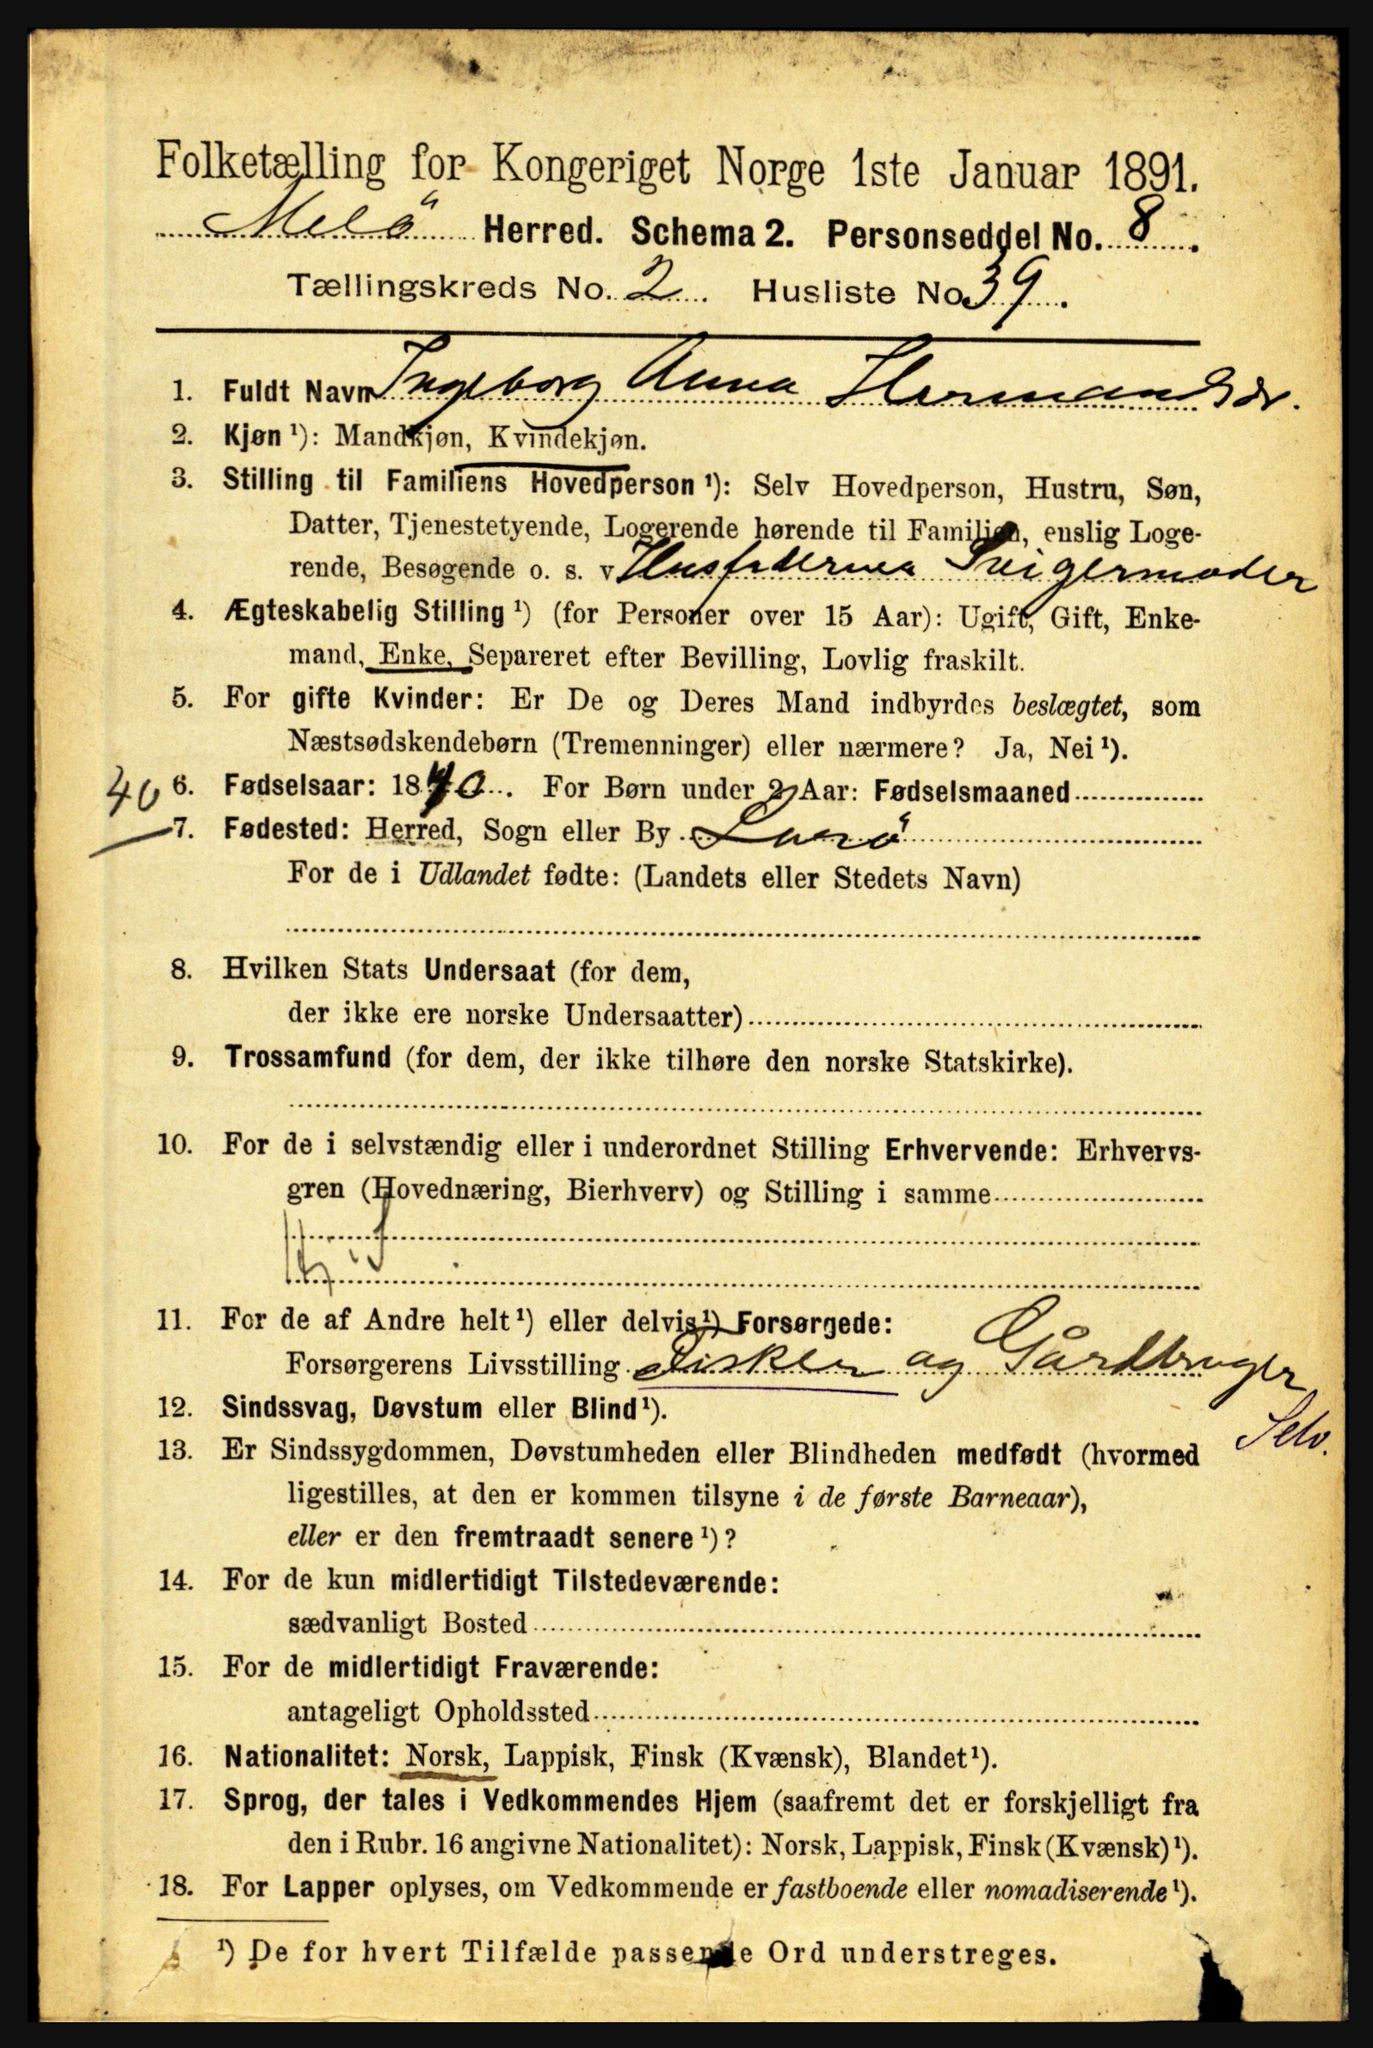 Folketælling for Kongeriget Norge 1ste Januar 1891.
Melö Herred. Schema 2. Personseddel No. 8.
Tællingskreds No. 2. Husliste No. 39.
1. Fuldt Navn Ingeborg Anna Hermansdr.
2. Kjøn ¹): Mandkjøn, Kvindekjøn.
3. Stilling til Familiens Hovedperson ¹): Selv Hovedperson, Hustru, Søn,
Datter, Tjenestetyende, Logerende hørende til Familien, enslig Loge-
rende, Besøgende o. s. v Husfaderens Svigermoder
4. Ægteskabelig Stilling ¹) (for Personer over 15 Aar): Ugift, Gift, Enke-
mand, Enke, Separeret efter Bevilling, Lovlig fraskilt.
5. For gifte Kvinder: Er De og Deres Mand indbyrdes beslægtet, som
Næstsødskendebørn (Tremenninger) eller nærmere? Ja, Nei ¹).
40 6. Fødselsaar: 1840. For Børn under 2 Aar: Fødselsmaaned
7. Fødested: Herred, Sogn eller By Lurö
For de i Udlandet fødte: (Landets eller Stedets Navn)
8. Hvilken Stats Undersaat (for dem,
der ikke ere norske Undersaatter)
9. Trossamfund (for dem, der ikke tilhøre den norske Statskirke).
10. For de i selvstændig eller i underordnet Stilling Erhvervende: Erhvervs-
gren (Hovednæring, Bierhverv) og Stilling i samme
11. For de af Andre helt ¹) eller delvis ¹) Forsørgede:
Forsørgerens Livsstilling Fisker og Gårdbruger
Selv.
12. Sindssvag, Døvstum eller Blind ¹).
13. Er Sindssygdommen, Døvstumheden eller Blindheden medfødt (hvormed
ligestilles, at den er kommen tilsyne i de første Barneaar),
eller er den fremtraadt senere ¹)?
14. For de kun midlertidigt Tilstedeværende:
sædvanligt Bosted
15. For de midlertidigt Fraværende:
antageligt Opholdssted
16. Nationalitet: Norsk, Lappisk, Finsk (Kvænsk), Blandet ¹).
17. Sprog, der tales i Vedkommendes Hjem (saafremt det er forskjelligt fra
den i Rubr. 16 angivne Nationalitet): Norsk, Lappisk, Finsk (Kvænsk) ¹).
18. For Lapper oplyses, om Vedkommende er fastboende eller nomadiserende ¹).
¹) De for hvert Tilfælde passende Ord understreges.